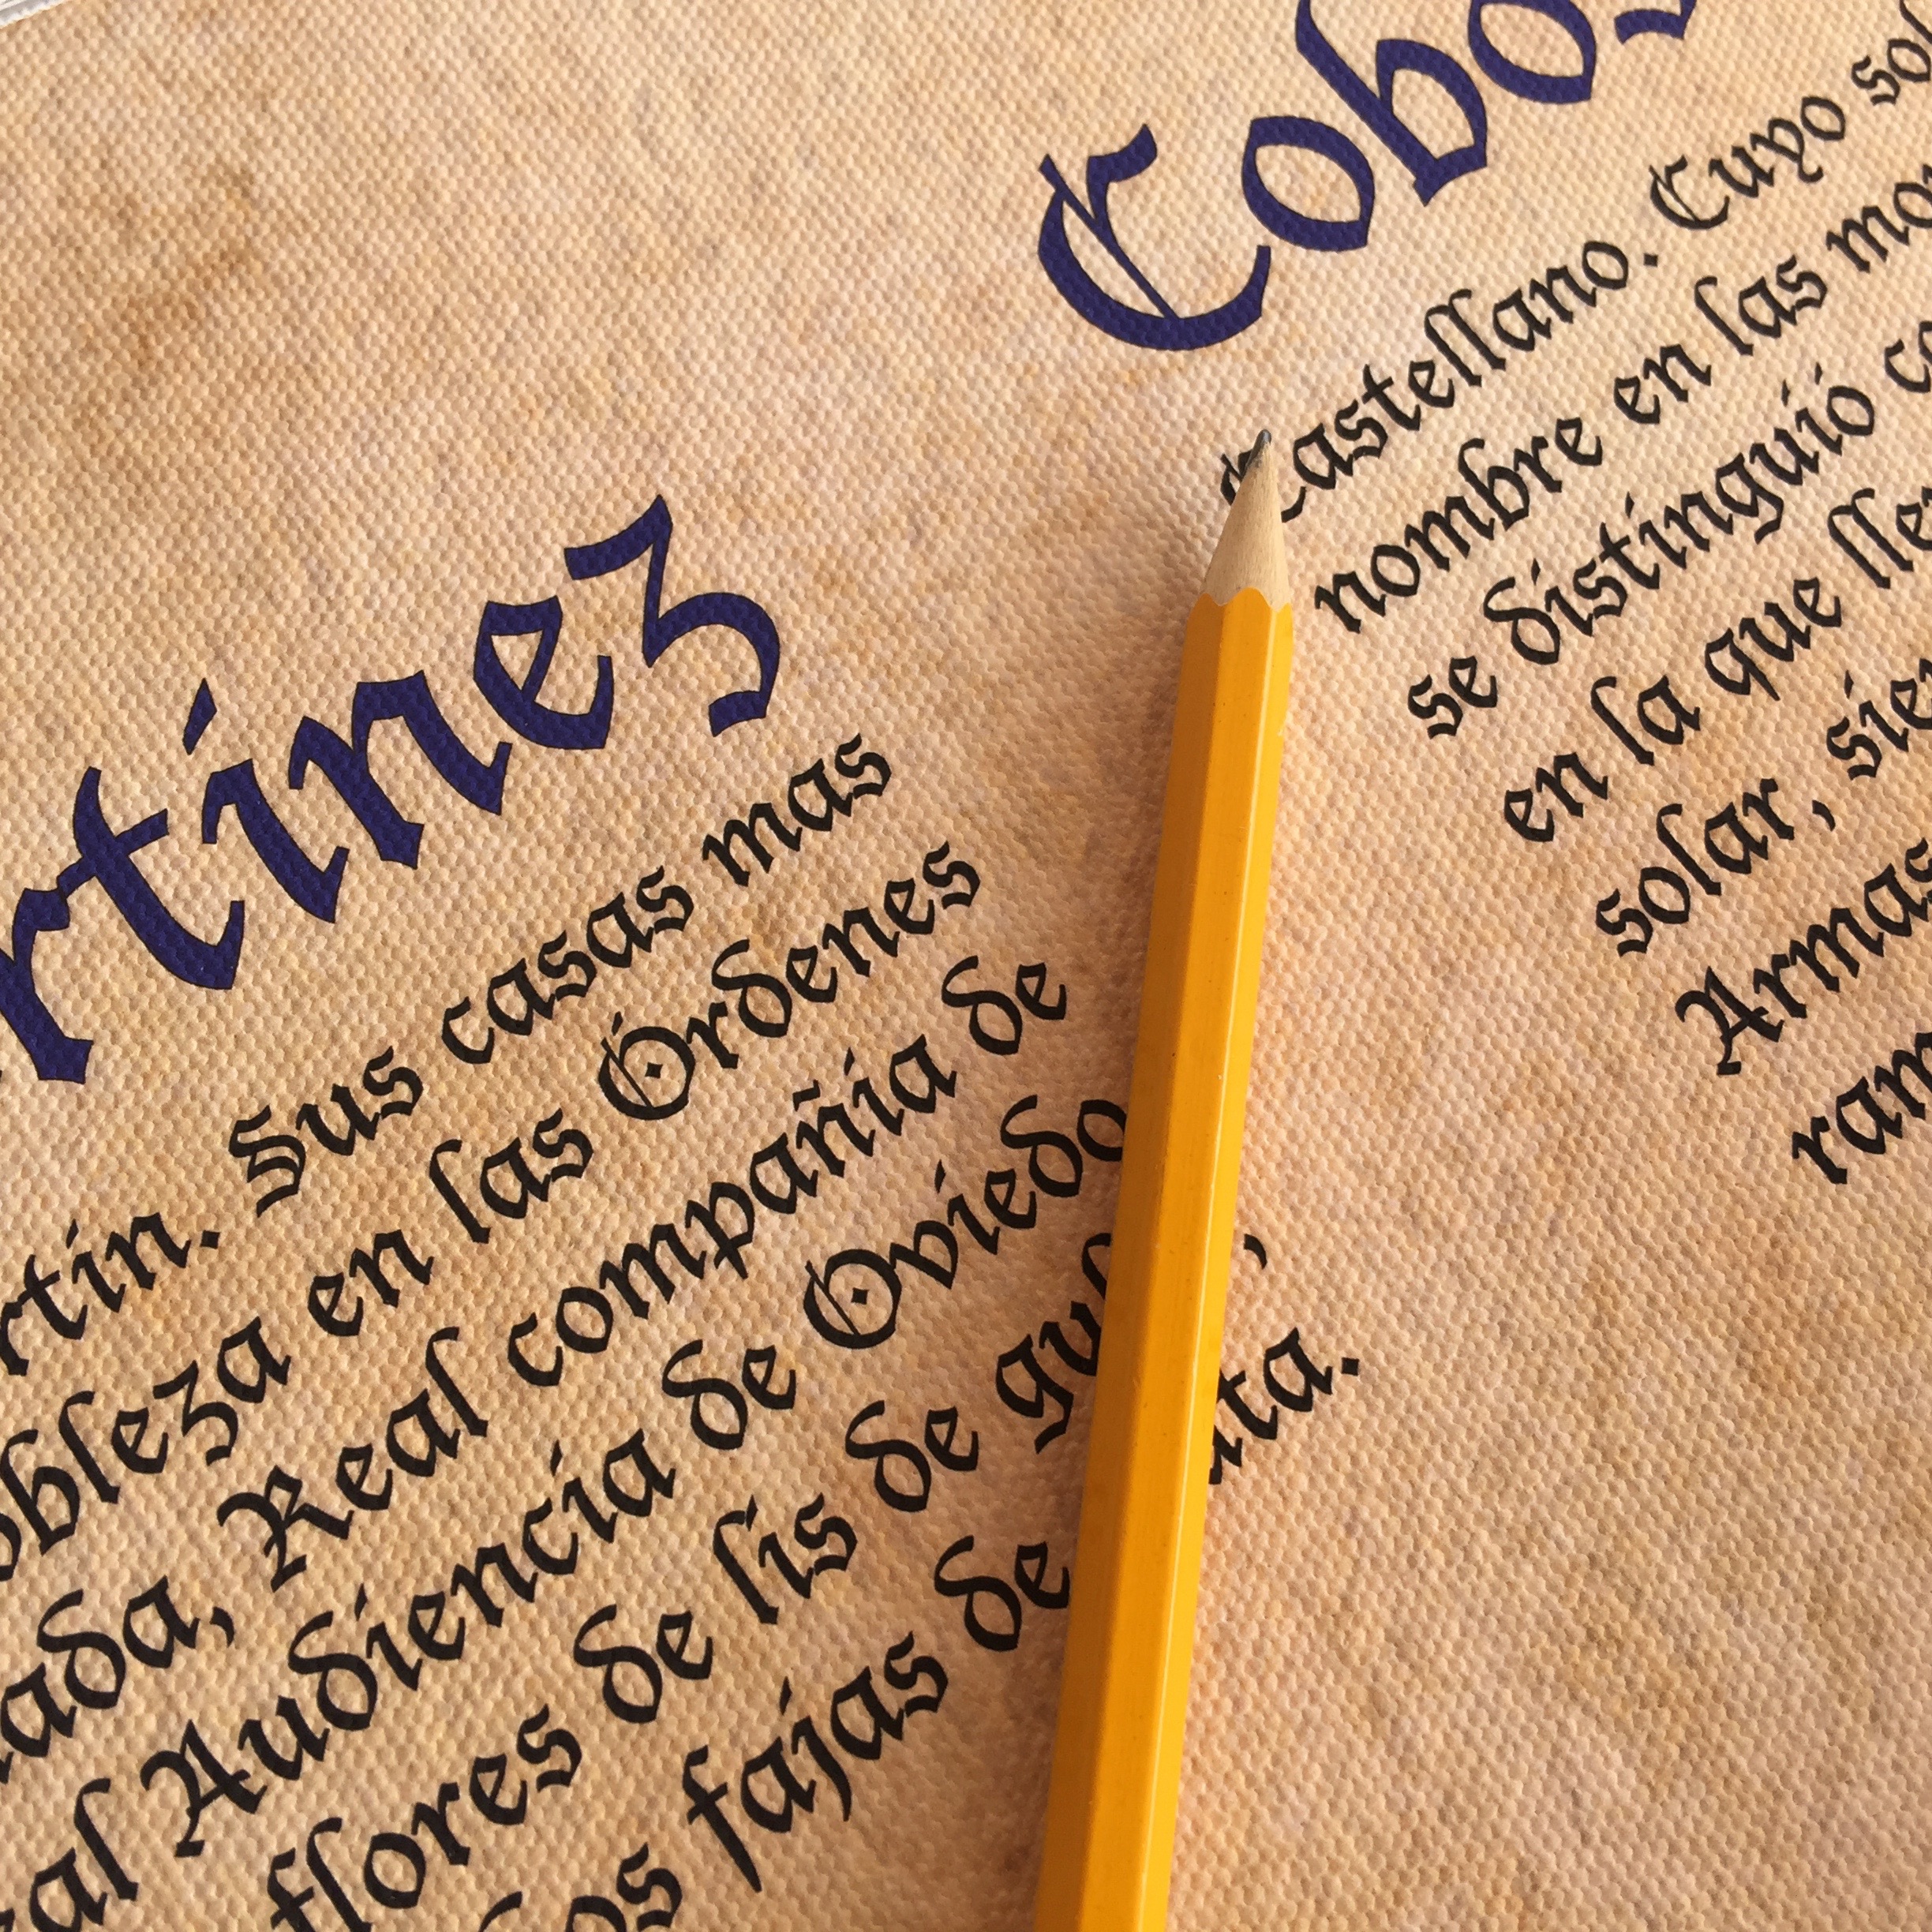 rtinez
rtin. Sus casas mas
obleza en las Órdenes
nada, Real compañia de
al Audiencia de Oviedo
flores de lis de gul ,
fajas de ata.
Cobos
Castellano. Cuyo sol
nombre en las mo
se distinguió co
en la que lle
solar, sie
Armas
ram